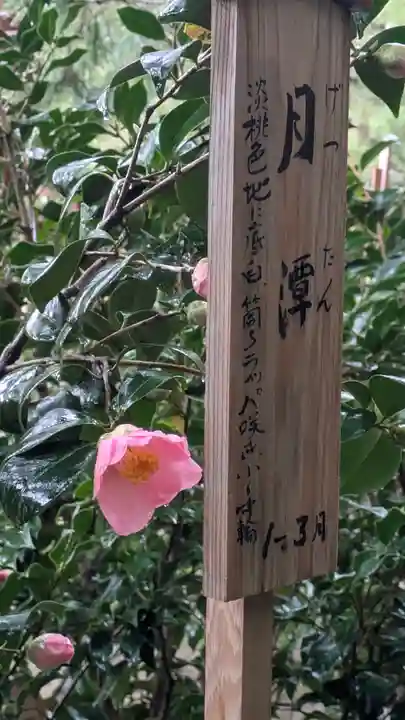 月潭
げったん
淡桃色地に底白、筒〜ラッパ咲き、小〜中輪
1~3月